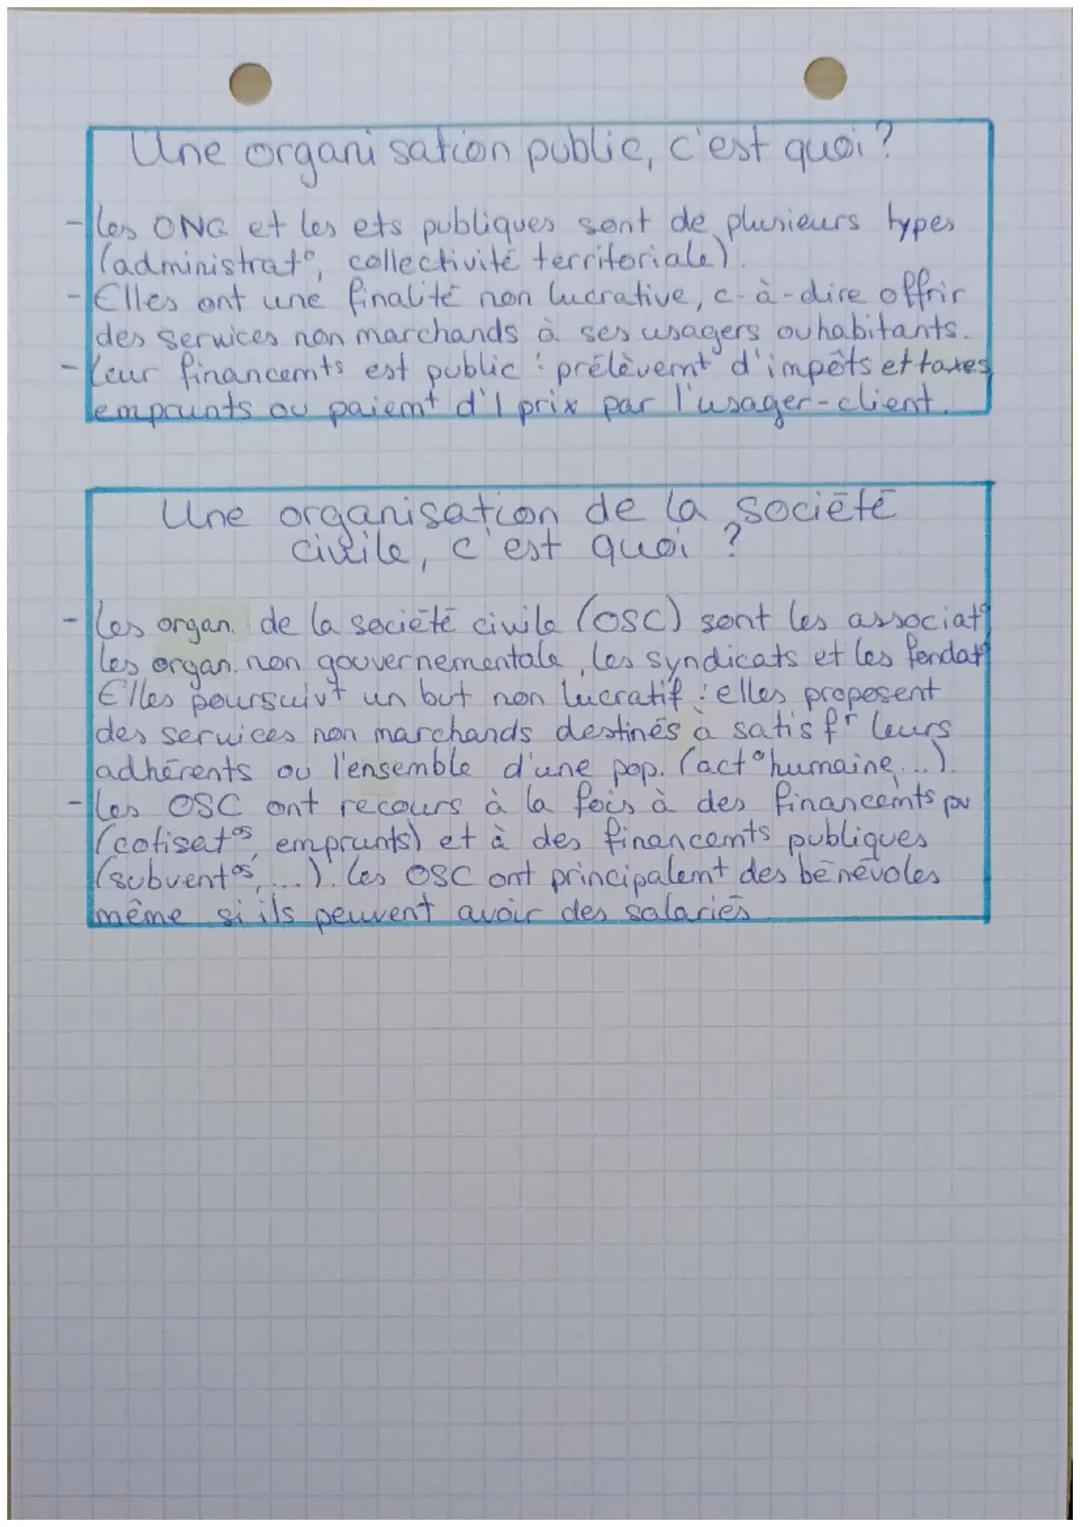 Une organisation public, c'est quoi ?
- Les ONG et les ets publiques sont de plusieurs types
(administrat°, collectivité territoriale).
- Elles ont une finalité non lucrative, c-à-dire offrir
des services non marchands à ses usagers ou habitants.
- Leur financemts est public : prélèvemt d'impôts et taxes,
emprunts ou paiemt d'1 prix par l'usager-client.
Une organisation de la société
civile, c'est quoi ?
- Les organ. de la société civile (OSC) sont les associat°
les organ. non gouvernementale, les syndicats et les fondat°
Elles poursuivt un but non lucratif : elles proposent
des services non marchands destinés à satisfr leurs
adhérents ou l'ensemble d'une pop. (act° humaine, ...).
- Les OSC ont recours à la fois à des financemts pv
(cotisat°s, emprunts) et à des financemts publiques
(subvent°s, ...). Les OSC ont principalemt des bénévoles
même si ils peuvent avoir des salariés